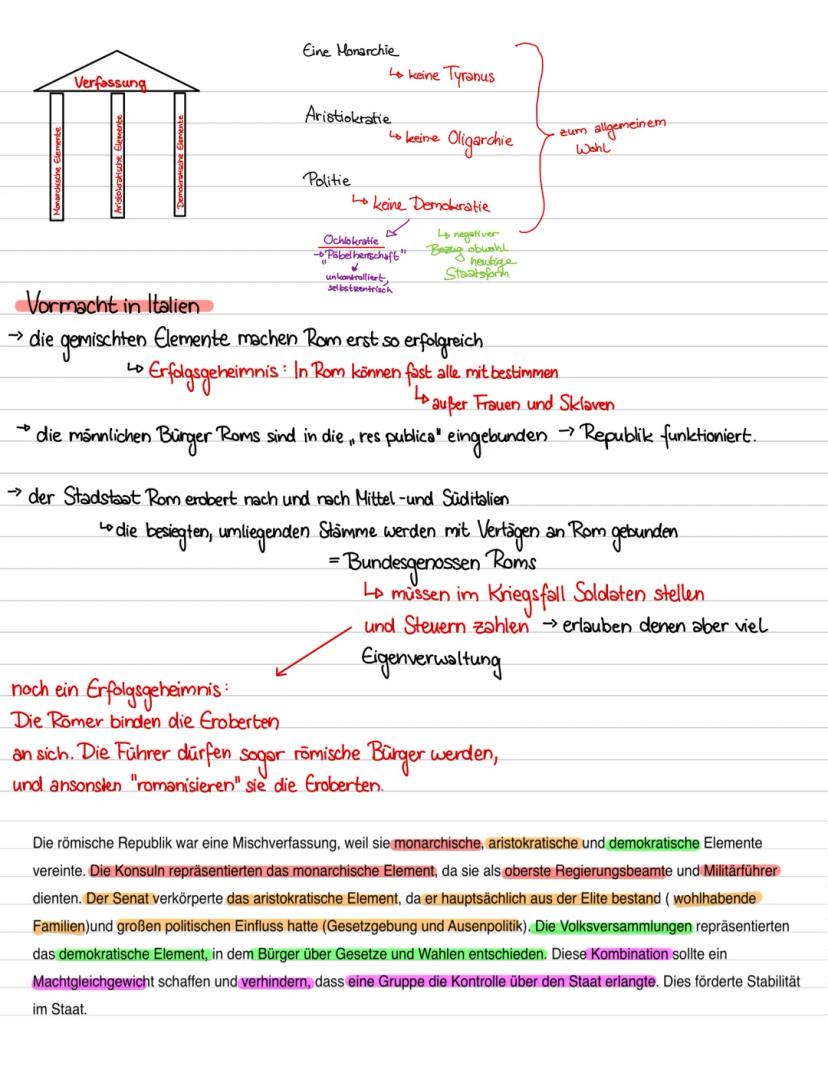 Verfassung
Monarchische Elemente
Aristokratische Elemente
Demokratische Elemente
Eine Monarchie
↳ keine Tyranus
Aristiokratie
↳ keine Oligarchie
Politie
↳ keine Demokratie
zum allgemeinem
Wohl
Ochlokratie
→ "Pöbelherrschaft"
unkontrolliert,
selbstzentrisch
↳ negativer
Bezug obwohl
heutige
Staatsform
Vormacht in Italien
→ die gemischten Elemente machen Rom erst so erfolgreich
↳ Erfolgsgeheimnis: In Rom können fast alle mitbestimmen
↳ außer Frauen und Sklaven
→ die männlichen Bürger Roms sind in die „res publica" eingebunden → Republik funktioniert.
→ der Stadstaat Rom erobert nach und nach Mittel-und Süditalien
↳ die besiegten, umliegenden Stämme werden mit Vertägen an Rom gebunden
= Bundesgenossen Roms
↳ müssen im Kriegsfall Soldaten stellen
und Steuern zahlen → erlauben denen aber viel
Eigenverwaltung
noch ein Erfolgsgeheimnis:
Die Römer binden die Eroberten
an sich. Die Führer dürfen sogar römische Bürger werden,
und ansonsten "romanisieren" sie die Eroberten.
Die römische Republik war eine Mischverfassung, weil sie monarchische, aristokratische und demokratische Elemente
vereinte. Die Konsuln repräsentierten das monarchische Element, da sie als oberste Regierungsbeamte und Militärführer
dienten. Der Senat verkörperte das aristokratische Element, da er hauptsächlich aus der Elite bestand ( wohlhabende
Familien)und großen politischen Einfluss hatte (Gesetzgebung und Ausenpolitik). Die Volksversammlungen repräsentierten
das demokratische Element, in dem Bürger über Gesetze und Wahlen entschieden. Diese Kombination sollte ein
Machtgleichgewicht schaffen und verhindern, dass eine Gruppe die Kontrolle über den Staat erlangte. Dies förderte Stabilität
im Staat.